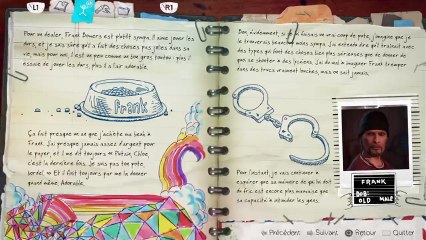 L1
R1
Pour un dealer, Frank Bowers est plutôt sympa. Il aime jouer les
durs, et je suis sûre qu'il a fait des choses pas jolies dans sa
vie, mais pour moi, il est un peu comme un gros toutou : plus il
essaie de jouer les durs, plus il a l'air adorable.
Frank
Ça fait presque un an que j'achète ma beuh à
Frank. J'ai presque jamais assez d'argent pour
le payer, et il me dit toujours « Putain, Chloe,
c'est la dernière fois. Je suis pas ton pote
bordel. » Et il finit toujours par me la donner
quand même. Adorable.
Bon évidemment, si je lui faisais un vrai coup de pute, j'imagine que je
le trouverais beaucoup moins sympa. J'ai entendu dire qu'il traitait avec
des types qui font des choses bien plus sérieuses que de donner de
quoi se shooter à des lycéens. J'ai du mal à imaginer Frank tremper
dans des trucs vraiment louches, mais on sait jamais.
Pour l'instant, je vais continuer à
espérer que sa mémoire de qui lui doit
du fric est encore plus mauvaise que
sa capacité à intimider les gens.
FRANK
DOB:
OLD MALE
Précédent
Suivant
Retour
Quitter